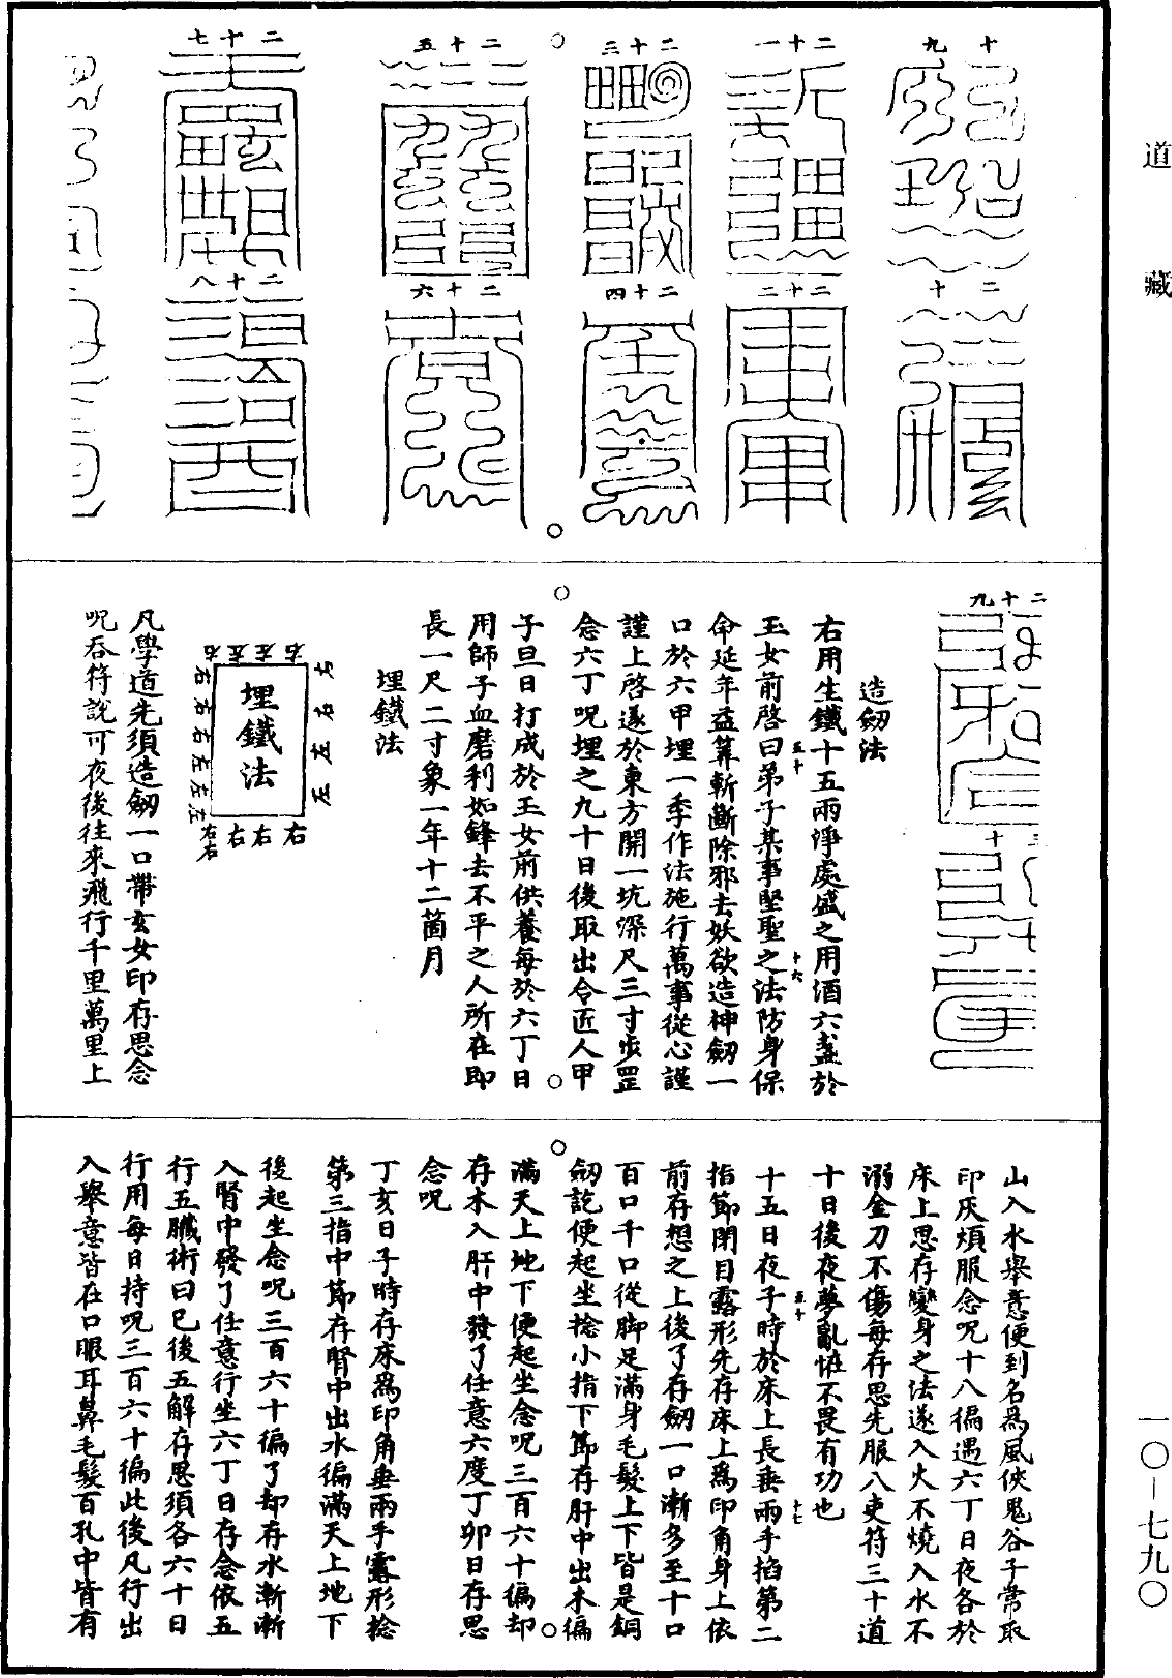 道藏
十九
二十
二十一
二十二
二十三
二十四
二十五
二十六
二十七
二十八
二十九
三十
造劒法
右用生鐵十五兩淨處盛之用酒六盞於
玉女前啓曰弟子某事堅聖之法防身保
五十
十六
命延年益筭斬斷除邪去妖欲造神劒一
口於六甲埋一季作法施行萬事從心謹
謹上啓遂於東方開一坑深尺三寸步罡
念六丁呪埋之九十日後取出令匠人甲
子旦日打成於玉女前供養每於六丁日
用師子血磨利如鋒去不平之人所在即
長一尺二寸象一年十二箇月
埋鐵法
右左左右
右左左
埋鐵法
右右右左左左
右右右右
凡學道先須造劒一口帶玄女印存思念
呪吞符說可夜後往來飛行千里萬里上
山入水舉意便到名爲風俠鬼谷子常取
印灰煩服念呪十八徧遇六丁日夜各於
床上思存變身之法遂入火不燒入水不
溺金刀不傷每存思先服八吏符三十道
十日後夜夢亂恠不畏有功也
十五日夜子時於床上長垂兩手掐第二
五十
十七
指節閉目露形先存床上爲印角身上依
前存想之上後了存劒一口漸多至十口
百口千口從脚足滿身毛髮上下皆是銅
劒訖便起坐捻小指下節存肝中出木徧
滿天上地下便起坐念呪三百六十徧却
存木入肝中發了任意六度丁卯日存思
念呪
丁亥日子時存床爲印角垂兩手露形捻
第三指中節存腎中出水徧滿天上地下
後起坐念呪三百六十徧了却存水漸漸
入腎中發了任意行坐六丁日存念依五
行五臟術曰已後五解存思須各六十日
行用每日持呪三百六十徧此後凡行出
入舉意皆在口眼耳鼻毛髮百孔中皆有
一〇—七九〇